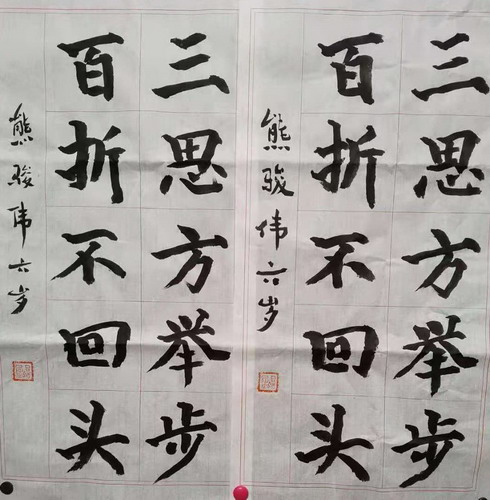 三思方举步
百折不回头
熊骏伟六岁
三思方举步
百折不回头
熊骏伟六岁